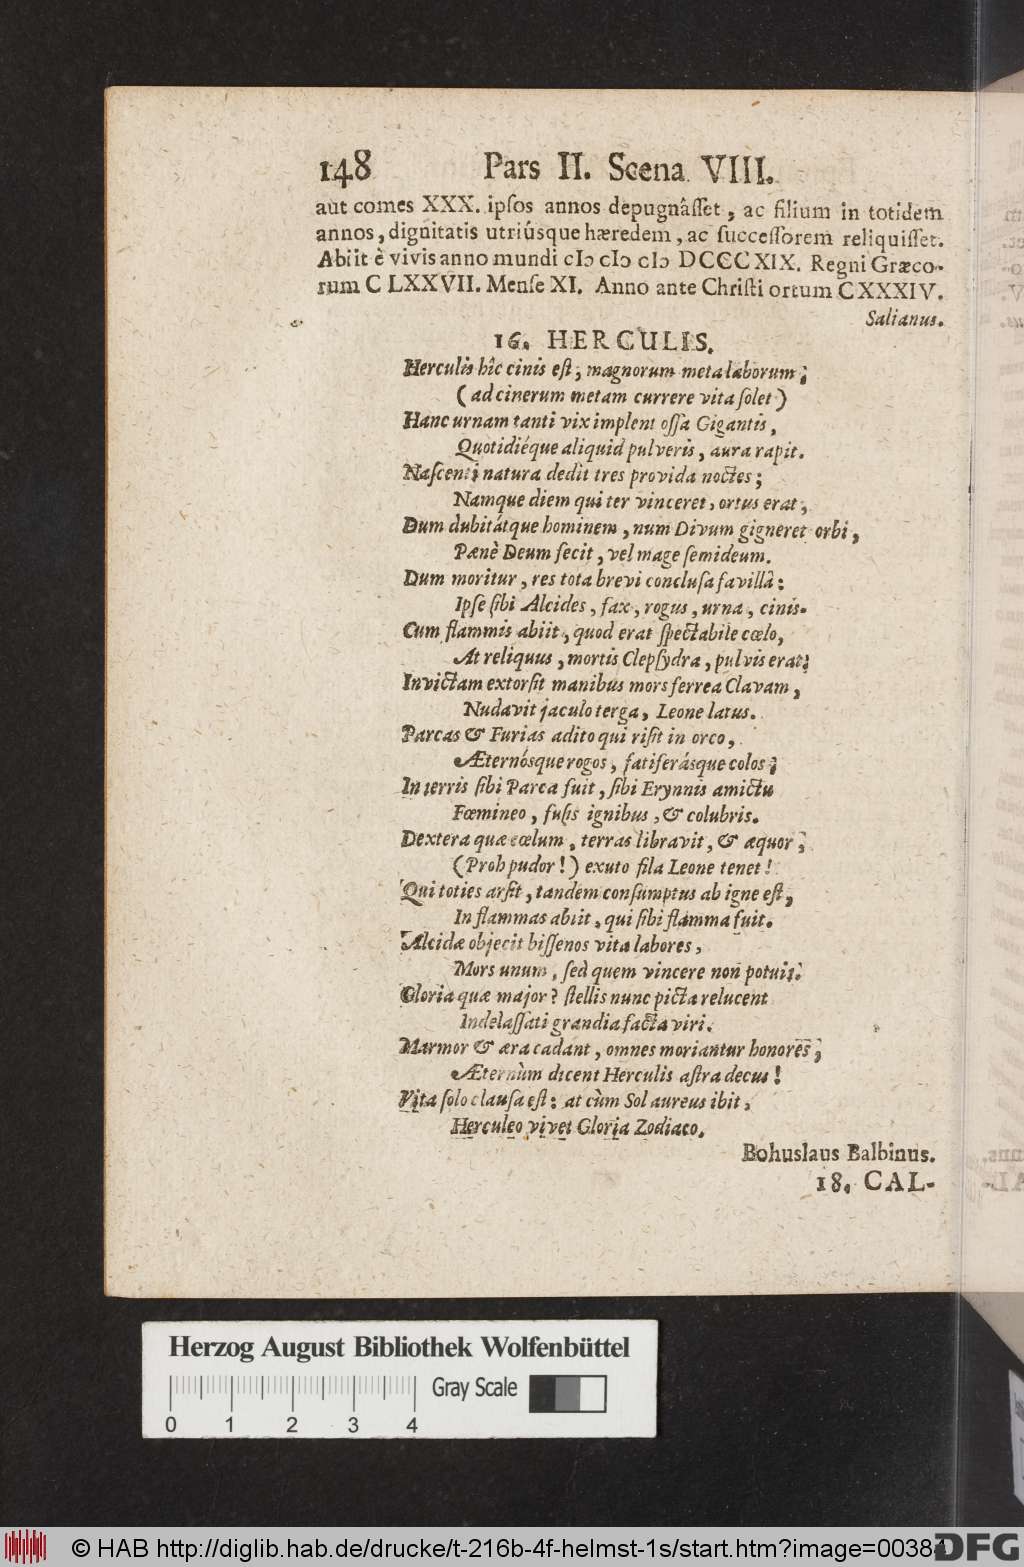 148 Pars II. Scena VIII.
aut comes XXX. ipſos annos depugnâſſet, ac filium in totidem
annos, dignitatis utriúsque hæredem, ac ſucceſſorem reliquiſſet.
Abiit è vivis anno mundi cIɔ cIɔ cIɔ DCCCXIX. Regni Græco-
rum CLXXVII. Menſe XI. Anno ante Chriſti ortum CXXXIV.
Salianus.
16. HERCULIS.
Herculis hîc cinis eſt, magnorum meta laborum;
(ad cinerum metam currere vita ſolet)
Hanc urnam tanti vix implent oſſa Gigantis,
Quotidiéque aliquid pulveris, aura rapit.
Naſcenti natura dedit tres provida noctes;
Namque diem qui ter vinceret, ortus erat,
Dum dubitátque hominem, num Divum gigneret orbi,
Pænè Deum fecit, vel mage ſemideum.
Dum moritur, res tota brevi concluſa favillâ:
Ipſe ſibi Alcides, fax, rogus, urna, cinis.
Cum flammis abiit, quod erat ſpectabile cœlo,
At reliquus, mortis Clepſydra, pulvis erat;
Invictam extorſit manibus mors ferrea Clavam,
Nudavit jaculo terga, Leone latus.
Parcas & Furias adito qui riſit in orco,
Æternósque rogos, fatiferásque colos;
In terris ſibi Parca fuit, ſibi Erynnis amictu
Fœmineo, fuſis ignibus, & colubris.
Dextera quæ cœlum, terras libravit, & æquor,
(Proh pudor!) exuto fila Leone tenet!
Qui toties arſit, tandem conſumptus ab igne eſt,
In flammas abiit, qui ſibi flamma fuit.
Alcidæ objecit biſſenos vita labores,
Mors unum, ſed quem vincere non potuit.
Gloria quæ major? ſtellis nunc picta relucent
Indelaſſati grandia facta viri.
Marmor & æra cadant, omnes moriantur honores,
Æternùm dicent Herculis aſtra decus!
Vita ſolo clauſa eſt: at cùm Sol aureus ibit,
Herculeo vivet Gloria Zodiaco.
Bohuslaus Balbinus.
18. CAL-
Herzog August Bibliothek Wolfenbüttel
Gray Scale
0 1 2 3 4
© HAB http://diglib.hab.de/drucke/t-216b-4f-helmst-1s/start.htm?image=00384
DFG